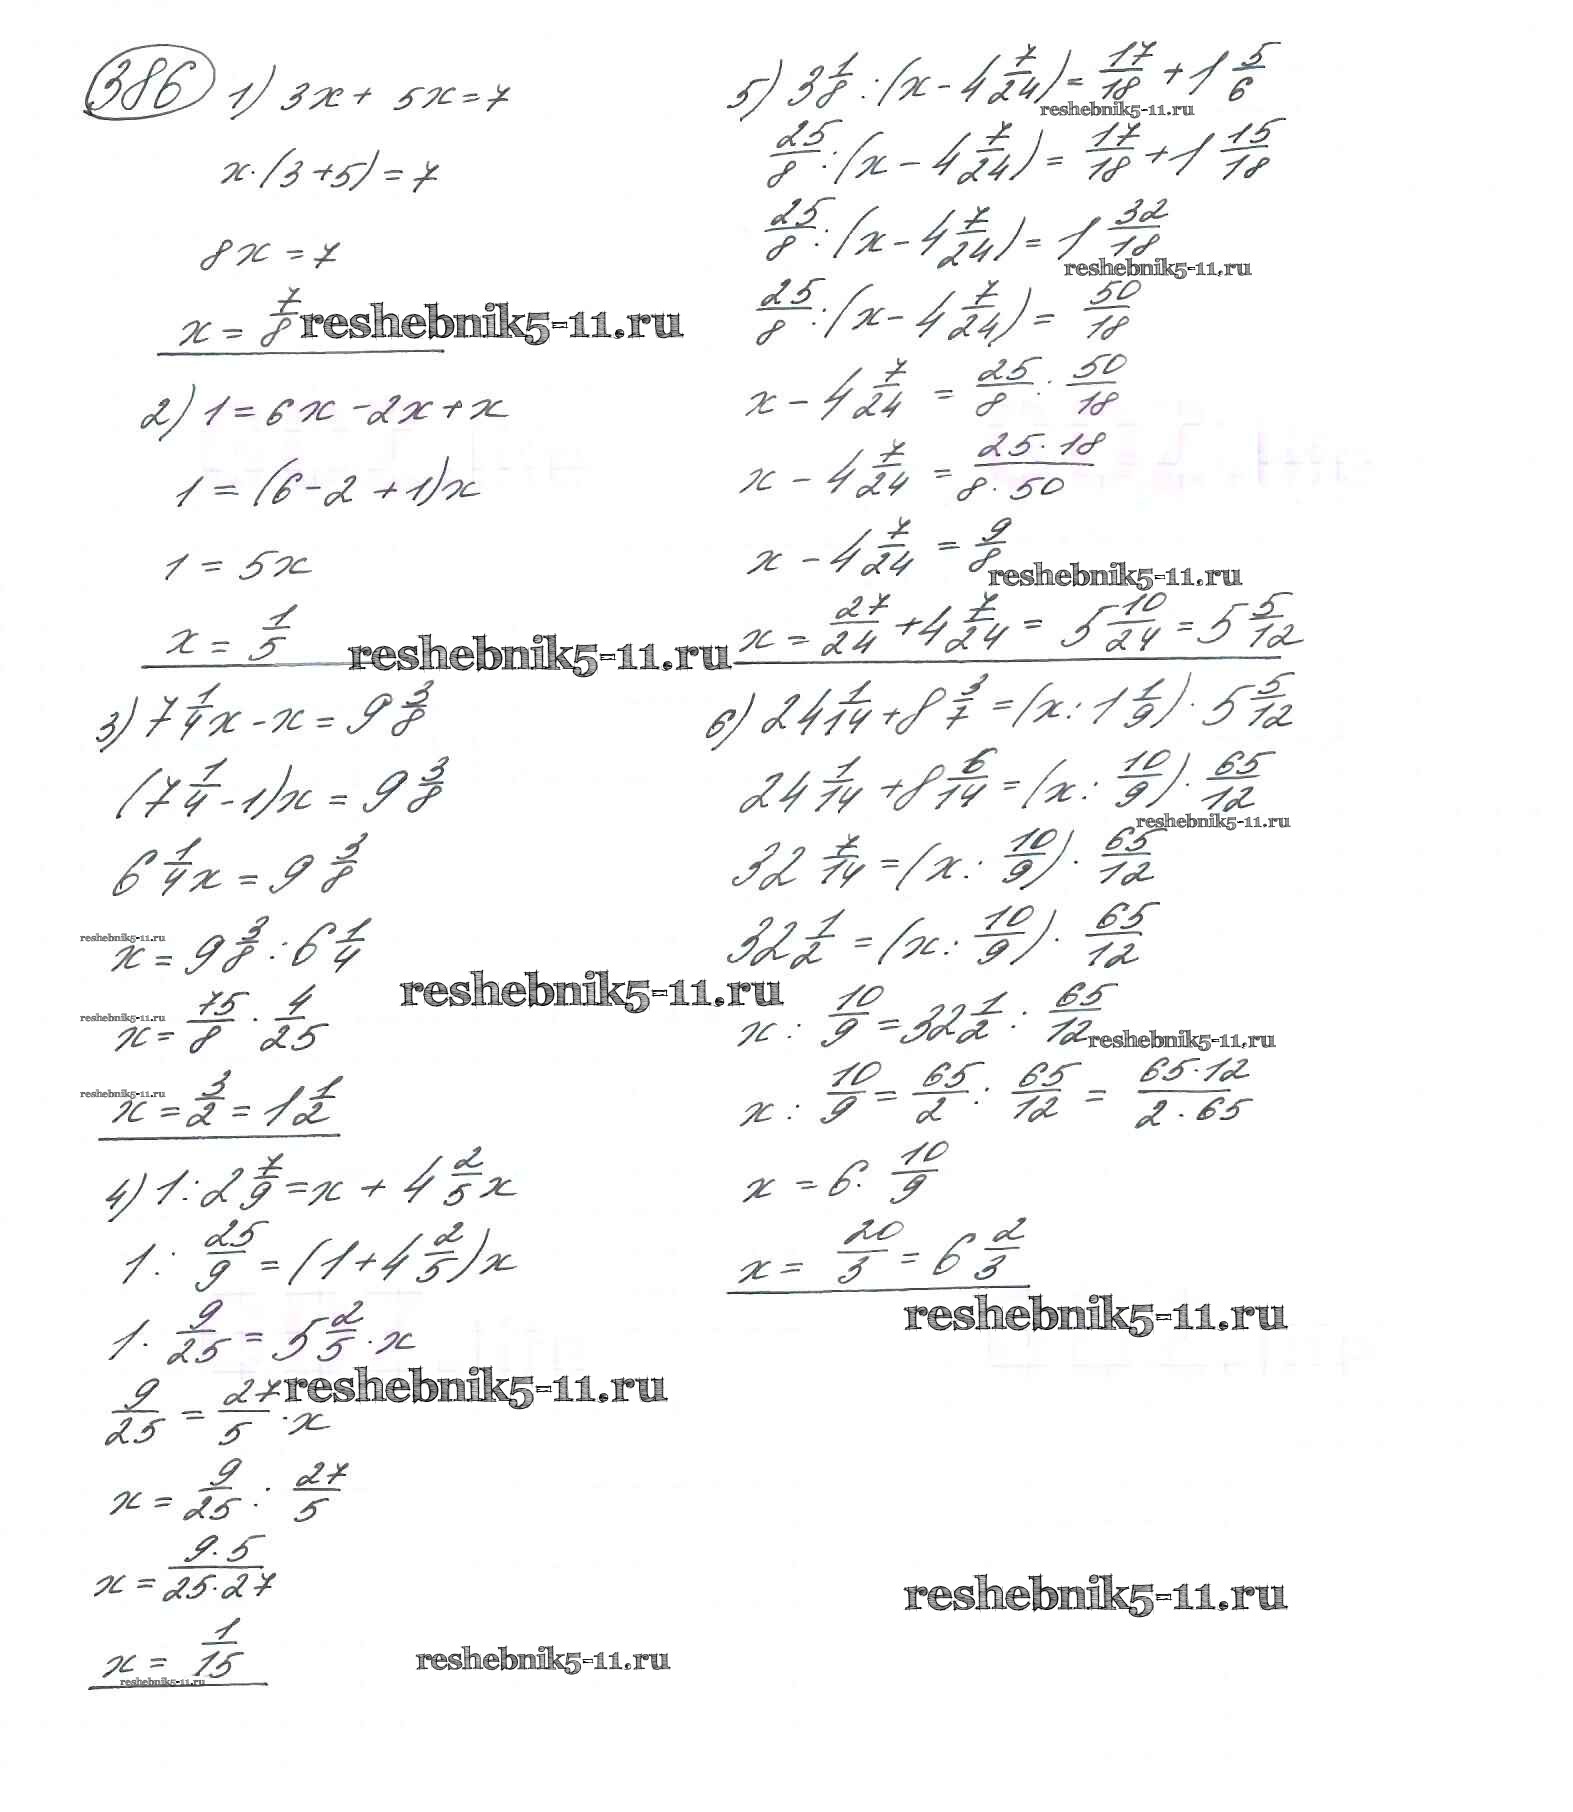 386 1) 3x + 5x = 7
x·(3+5) = 7
8x = 7
x = 7/8 reshebnik5-11.ru
2) 1 = 6x - 2x + x
1 = (6 - 2 + 1)x
1 = 5x
x = 1/5 reshebnik5-11.ru
3) 7 1/4 x - x = 9 3/8
(7 1/4 - 1)x = 9 3/8
6 1/4 x = 9 3/8
reshebnik5-11.ru
x = 9 3/8 : 6 1/4
reshebnik5-11.ru
reshebnik5-11.ru
x = 75/8 · 4/25
reshebnik5-11.ru
x = 3/2 = 1 1/2
4) 1 : 2 7/9 = x + 4 2/5 x
1 : 25/9 = (1 + 4 2/5)x
1 · 9/25 = 5 2/5 · x
reshebnik5-11.ru
9/25 = 27/5 · x
x = 9/25 : 27/5
x = 9·5/25·27
x = 1/15
reshebnik5-11.ru
reshebnik5-11.ru
5) 3 1/8 : (x - 4 7/24) = 17/18 + 1 5/6
reshebnik5-11.ru
25/8 : (x - 4 7/24) = 17/18 + 1 15/18
25/8 : (x - 4 7/24) = 1 32/18
reshebnik5-11.ru
25/8 : (x - 4 7/24) = 50/18
x - 4 7/24 = 25/8 : 50/18
x - 4 7/24 = 25·18/8·50
x - 4 7/24 = 9/8
reshebnik5-11.ru
x = 27/24 + 4 7/24 = 5 10/24 = 5 5/12
6) 24 1/14 + 8 3/7 = (x : 1 1/9) · 5 5/12
24 1/14 + 8 6/14 = (x : 10/9) · 65/12
reshebnik5-11.ru
32 7/14 = (x : 10/9) · 65/12
32 1/2 = (x : 10/9) · 65/12
x : 10/9 = 32 1/2 : 65/12
reshebnik5-11.ru
x : 10/9 = 65/2 : 65/12 = 65·12/2·65
x = 6 · 10/9
x = 20/3 = 6 2/3
reshebnik5-11.ru
reshebnik5-11.ru